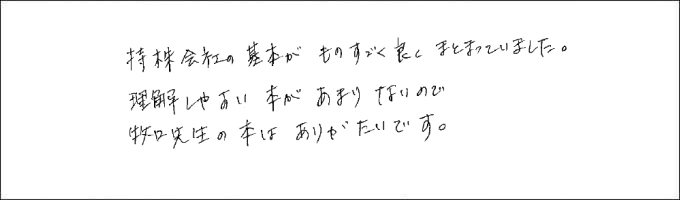 持株会社の基本が ものすごく良く まとまっていました。
理解しやすい 本が あまり ないので
牧口先生の本は ありがたいです。